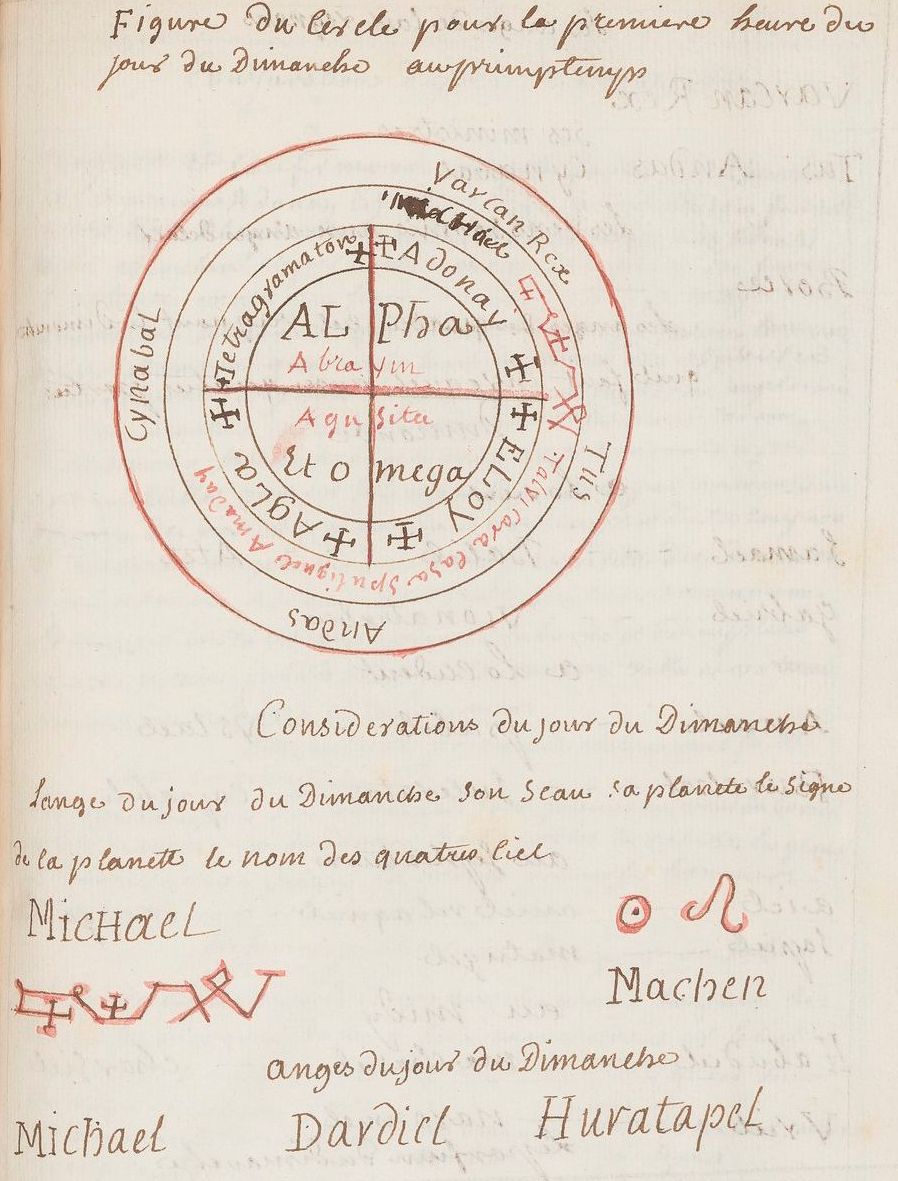 Figure du Cercle pour la premiere heure du
jour du Dimanche au primptemps
Varcan Rex
Tus
Andas
Cynabal
Michael
Talvi Cora Casa
Amaday
Tetragramaton
Adonay
ELOY
AgLa
AL Pha
Abra ym
Aqu sita
Et o mega
Considerations du jour du Dimanche
Lange du jour du Dimanche son seau sa planete le signe
de la planett le nom des quatres Ciel
MicHaeL
Machen
anges du jour du Dimanche
Michael Dardiel Huratapel